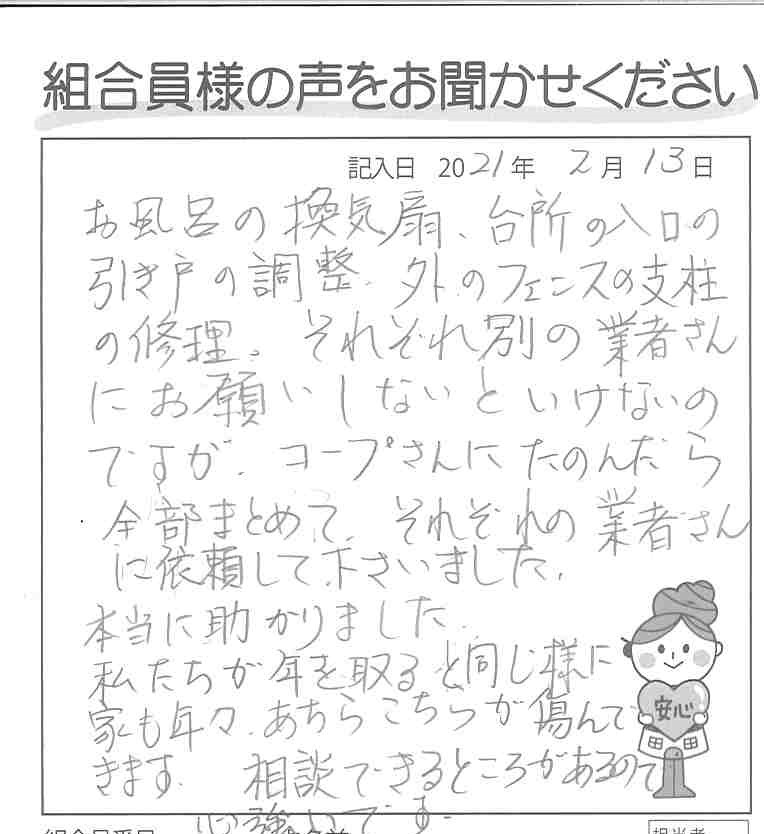 組合員様の声をお聞かせください
記入日 2021年 2月 13日
お風呂の換気扇、台所の入口の
引き戸の調整、外のフェンスの支柱
の修理。それぞれ別の業者さん
にお願いしないといけないの
ですが、コープさんにたのんだら
全部まとめて、それぞれの業者さん
に依頼して下さいました。
本当に助かりました。
私たちが年を取ると同じ様に
家も年々、あちらこちらが傷んで
きます。 相談できるところがあるので
心強いです。
安心
担当者